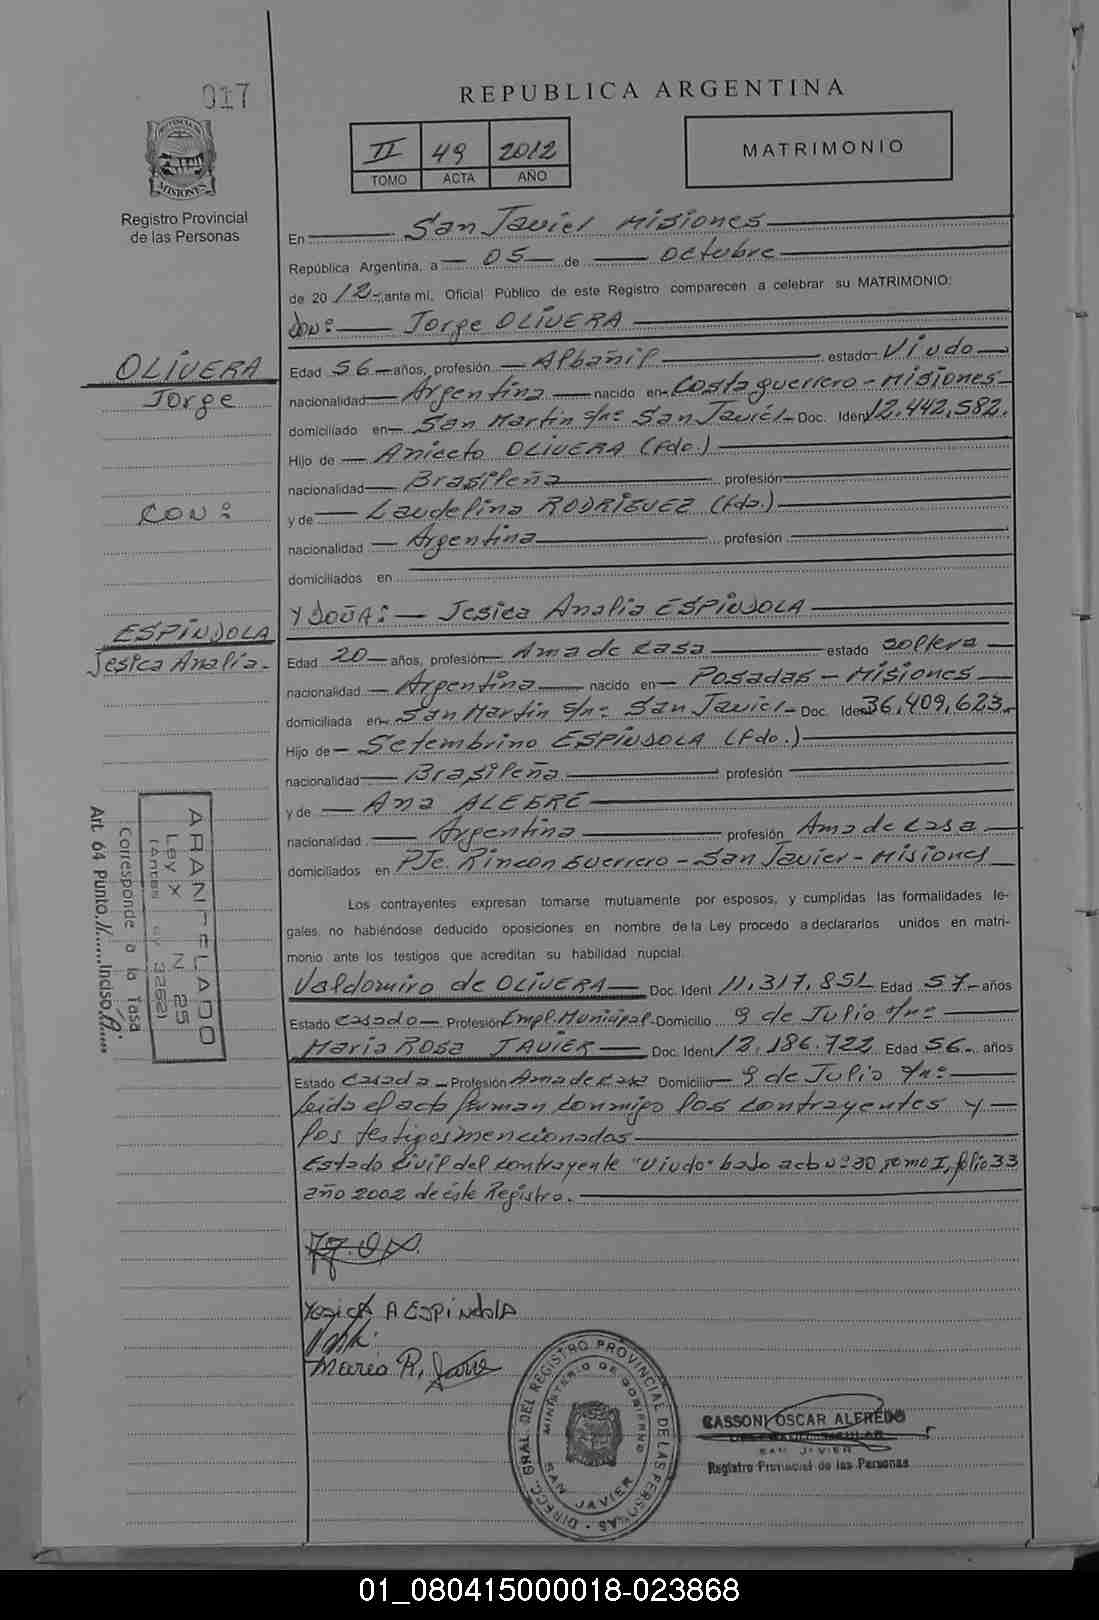 017
REPUBLICA ARGENTINA
PROVINCIA DE
MISIONES
II 49 2012
TOMO ACTA AÑO
MATRIMONIO
Registro Provincial
de las Personas
En San Javier Misiones
República Argentina, a 05 de Octubre
de 2012.- ante mí, Oficial Público de este Registro comparecen a celebrar su MATRIMONIO:
DON: Jorge OLIVERA
OLIVERA
Jorge
Edad 56 años, profesión Albañil estado Viudo
nacionalidad Argentina nacido en Costa guerrero - Misiones
domiciliado en San Martin s/nº San Javier - Doc. Ident 12.442.582.
Hijo de Aniceto OLIVERA (fdo.)
nacionalidad Brasileña profesión
CON:
y de Laudelina RODRIGUEZ (fda.)
nacionalidad Argentina profesión
domiciliados en
Y DOÑA: Jesica Analia ESPINDOLA
ESPINDOLA
Jesica Analia.-
Edad 20 años, profesión Ama de casa estado soltera
nacionalidad Argentina nacido en Posadas - Misiones
domiciliada en San Martin s/nº San Javier - Doc. Ident 36.409.623.
Hijo de Setembrino ESPINDOLA (fdo.)
nacionalidad Brasileña profesión
y de Ana ALEGRE
nacionalidad Argentina profesión Ama de casa
domiciliados en Pje. Rincón Guerrero - San Javier - Misiones
ARANCELADO
LEY X N 25
(Antes LEY 3262)
Corresponde a la Tasa
Art. 64 Punto Inciso
Los contrayentes expresan tomarse mutuamente por esposos, y cumplidas las formalidades le-
gales, no habiéndose deducido oposiciones en nombre de la Ley procedo a declararlos unidos en matri-
monio ante los testigos que acreditan su habilidad nupcial.
Valdomiro de OLIVERA Doc. Ident 11.317.851 Edad 57 años
Estado casado Profesión Empl. Municipal - Domicilio 9 de Julio s/nº
Maria Rosa JAVIER Doc. Ident 12.186.722 Edad 56 años
Estado casada Profesión Ama de casa Domicilio 9 de Julio s/nº
leida el acta firman conmigo los contrayentes y
los testigos mencionados
Estado Civil del contrayente "Viudo" bajo acta nº 30, tomo I, folio 33
año 2002 de éste Registro.
Yesica A ESPiNdolA
Maria R. Javier
DIRECC. GRAL. DEL REGISTRO PROVINCIAL DE LAS PERSONAS
MINISTERIO DE GOBIERNO
SAN JAVIER
CASSONI OSCAR ALFREDO
SAN JAVIER
Registro Provincial de las Personas
01_080415000018-023868